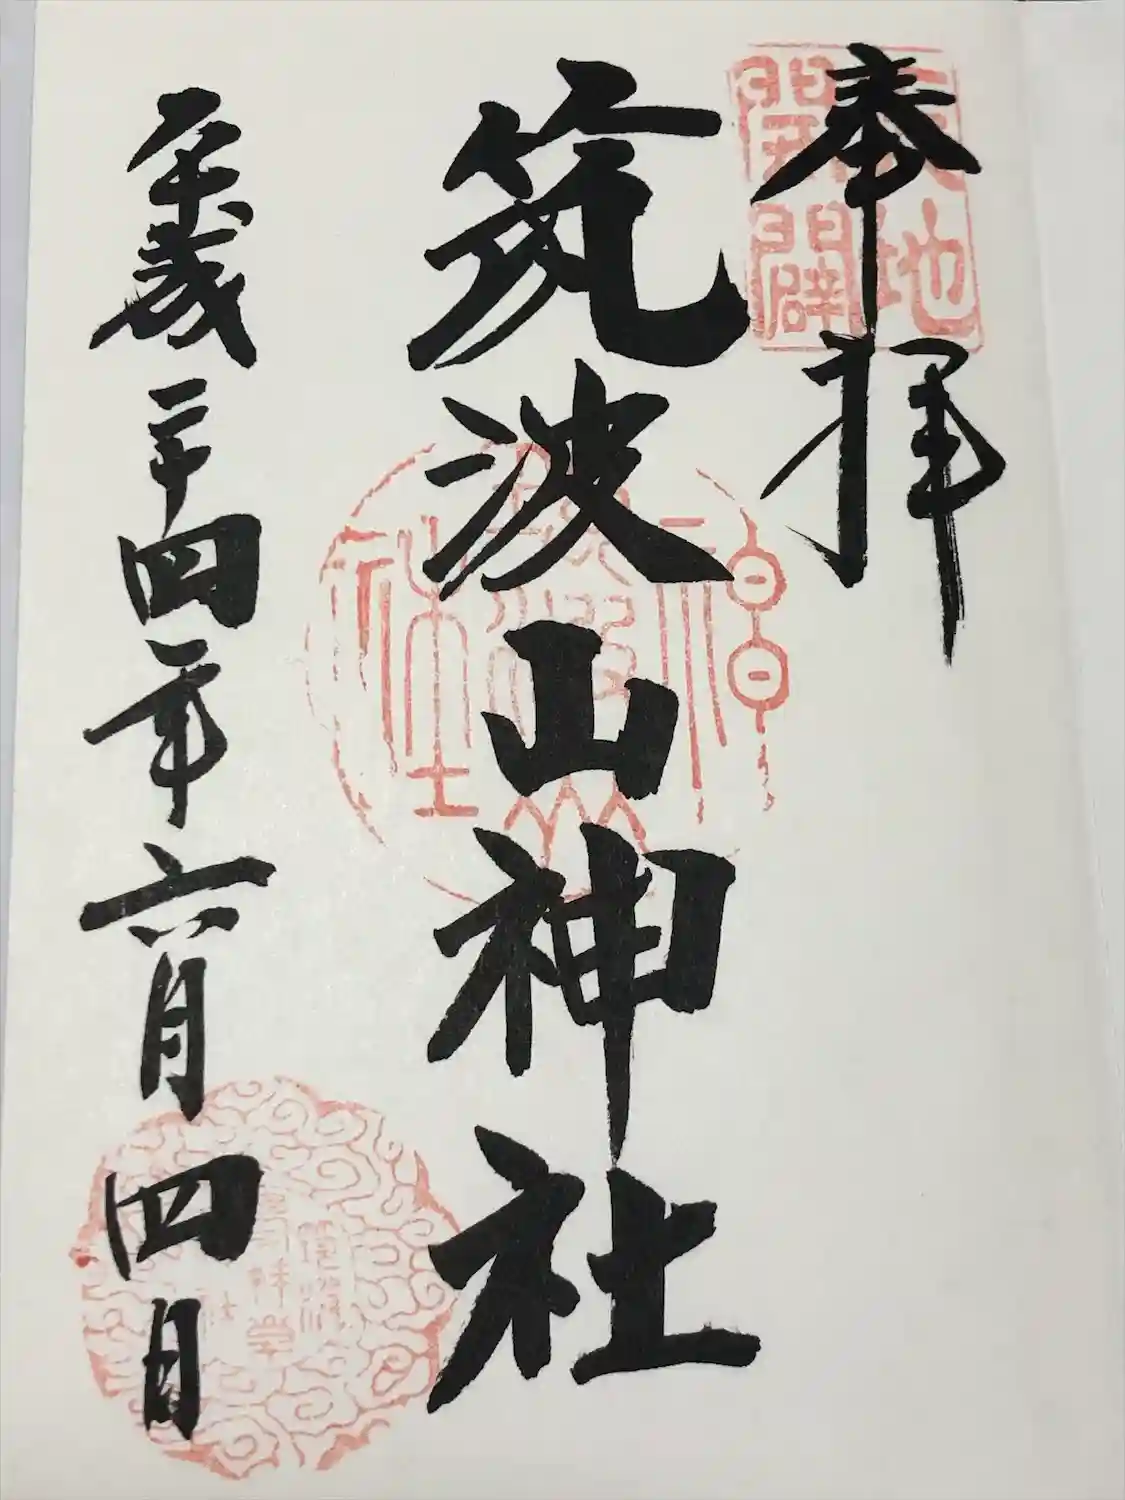 奉拝
天地
開闢
筑波山神社
平成二十四年六月四日